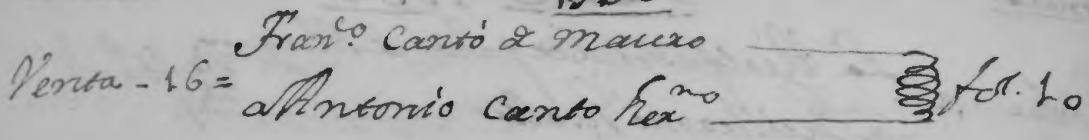 Fran.co Cantó de Mauro
Venta - 16 =
a Antonio Canto herno fol. 10